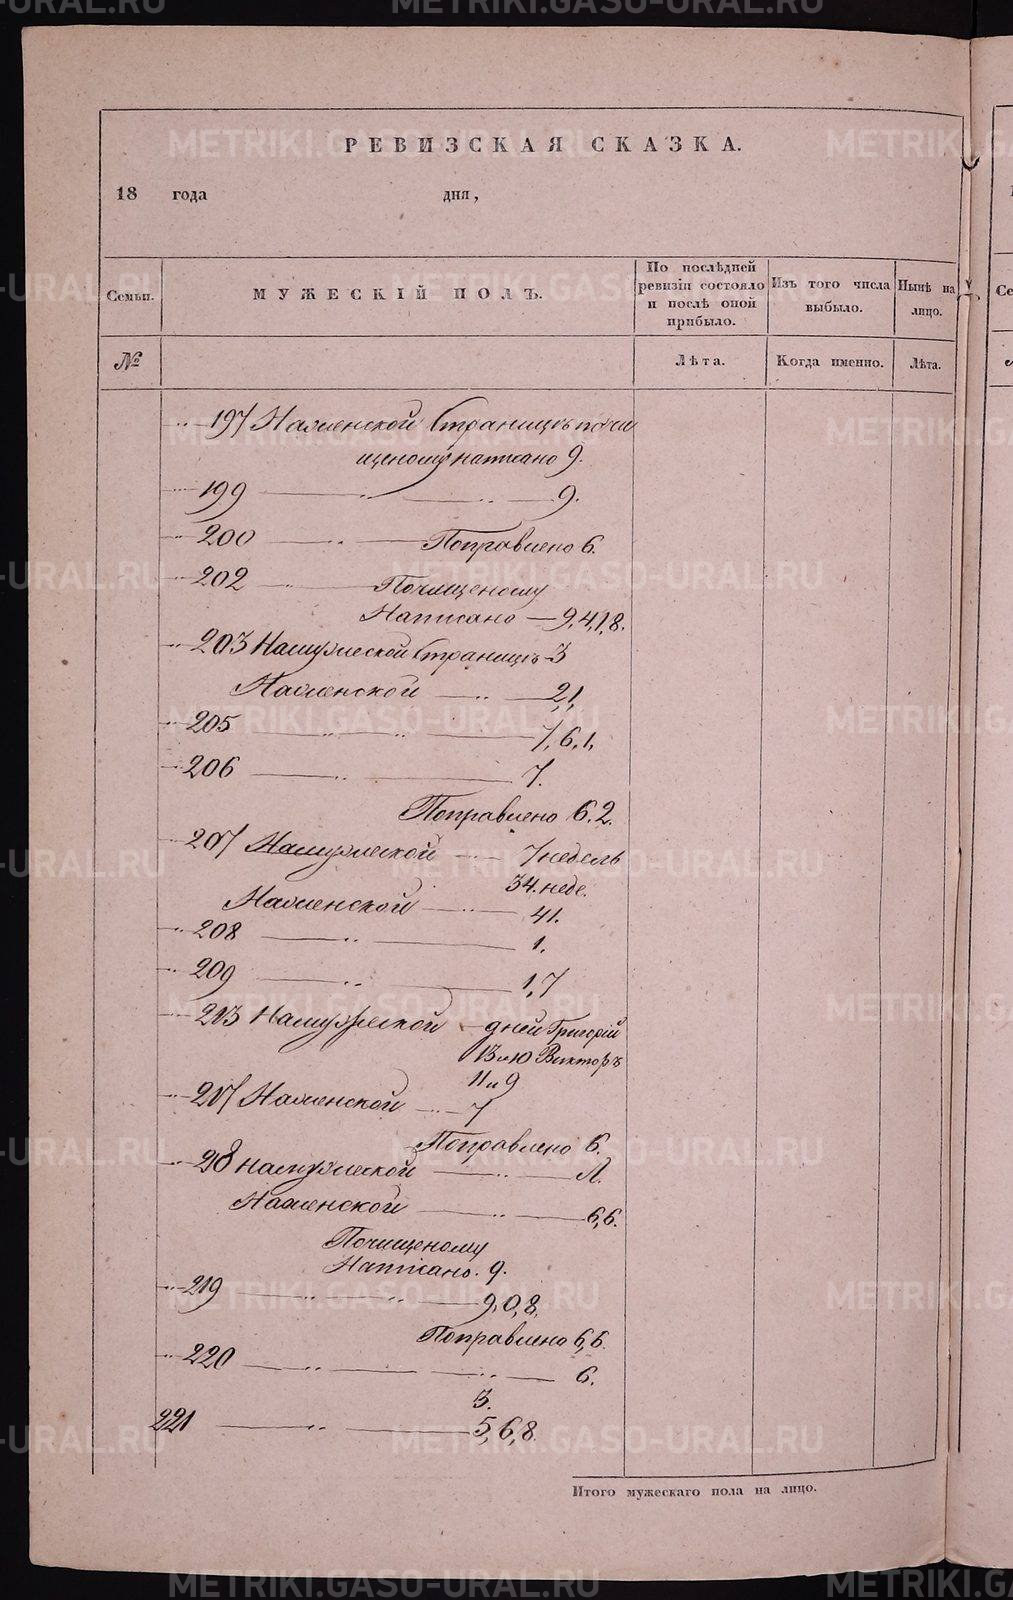 РЕВИЗСКАЯ СКАЗКА.
18 года дня,
Семьи. МУЖЕСКІЙ ПОЛЪ. По послѣдней ревизіи состояло и послѣ оной прибыло. Изъ того числа выбыло. Нынѣ на лицо.
№ Лѣта. Когда именно. Лѣта.
„ — 197 На женской Страницѣ почи
щеному написано 9.
„ — 199 — „ — „ — 9.
„ — 200 — „ — Поправлено 6.
„ — 202 — „ — Почищеному
Написано — 9,4,1,8.
„ — 203 На мужеской Страницѣ 3
На женской — „ — 2,1,
„ — 205 — „ — „ — 7,6,1,
„ — 206 — „ — 7.
Поправлено 6.2.
„ — 207 На мужеской — „ — 7 недель
34. неде.
На женской — „ — 41.
„ — 208 — „ — 1.
„ — 209 — „ — 1,7
„ — 213 На мужеской — дней Григорій
13 и 10 Викторъ
11 и 9
„ — 217 На женской — „ — 7
Поправлено 6.
„ — 218 на мужеской — „ — Л.
На женской — „ — 6,6.
Почищеному
Написано. 9.
„ — 219 — „ — „ — 9,0,8,
Поправлено 6,6.
„ — 220 — „ — „ — 6.
3.
221 — „ — 5,6,8.
Итого мужескаго пола на лицо.
METRIKI.GASO-URAL.RU